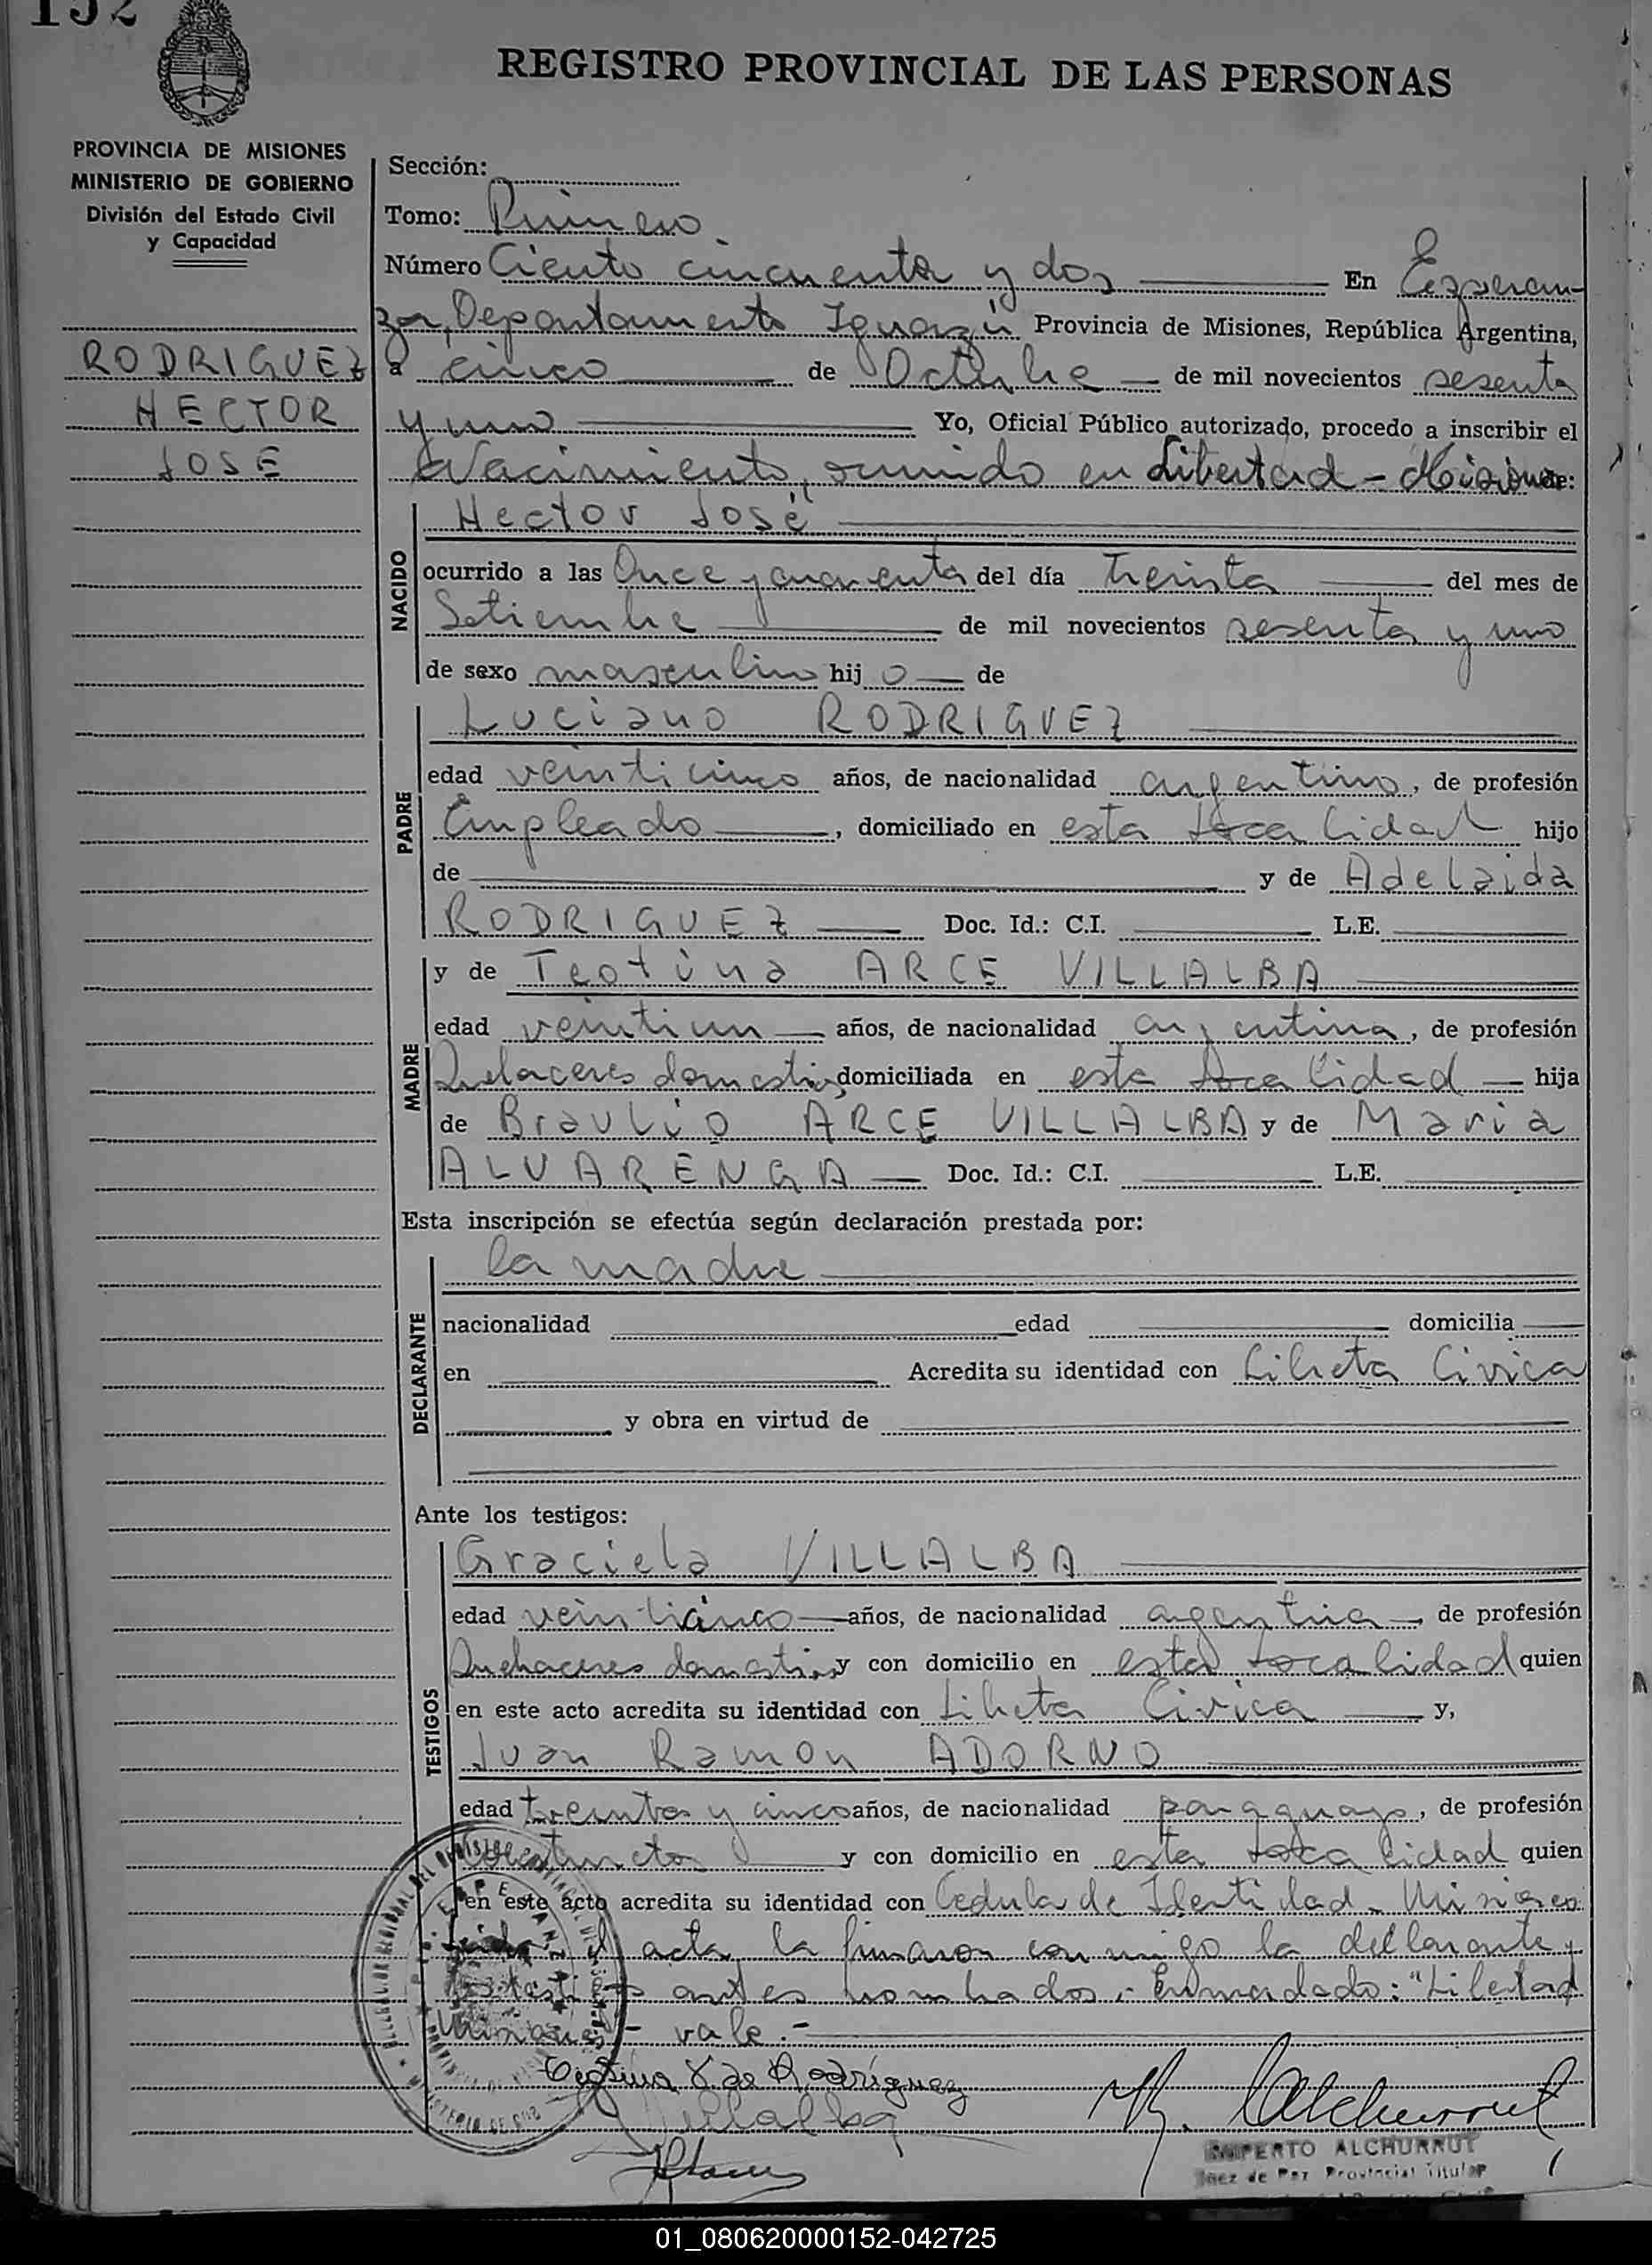 152
REGISTRO PROVINCIAL DE LAS PERSONAS
PROVINCIA DE MISIONES
MINISTERIO DE GOBIERNO
División del Estado Civil
y Capacidad
RODRIGUEZ
HECTOR
JOSE
Sección:
Tomo: Primero
Número Ciento cincuenta y dos En Esperan-
za, Departamento Iguazú Provincia de Misiones, República Argentina,
a cinco de Octubre de mil novecientos sesenta
y uno Yo, Oficial Público autorizado, procedo a inscribir el
Nacimiento, ocurrido en Libertad - Misiones de:
NACIDO
Hector José
ocurrido a las Once y cuarenta del día Treinta del mes de
Setiembre de mil novecientos sesenta y uno
de sexo masculino hijo de
PADRE
Luciano RODRIGUEZ
edad veinticinco años, de nacionalidad argentino, de profesión
Empleado, domiciliado en esta localidad hijo
de y de Adelaida
RODRIGUEZ Doc. Id.: C.I. L.E.
MADRE
y de Teotina ARCE VILLALBA
edad veintiun años, de nacionalidad argentina, de profesión
Quehaceres domesticos domiciliada en esta localidad hija
de Braulio ARCE VILLALBA y de Maria
ALVARENGA Doc. Id.: C.I. L.E.
Esta inscripción se efectúa según declaración prestada por:
DECLARANTE
la madre
nacionalidad edad domicilia
en Acredita su identidad con Libreta Civica
y obra en virtud de
Ante los testigos:
TESTIGOS
Graciela VILLALBA
edad veinticinco años, de nacionalidad argentina, de profesión
Quehaceres domesticos y con domicilio en esta localidad quien
en este acto acredita su identidad con Libreta Civica y,
Juan Ramon ADORNO
edad treinta y cinco años, de nacionalidad paraguayo, de profesión
y con domicilio en esta localidad quien
en este acto acredita su identidad con Cedula de Identidad Misiones
Leida el acta, la firmaron conmigo la declarante y
testigos antes nombrados.- Enmendado: "Libertad
Misiones - vale.-
Teotina V. de Rodríguez
Villalba
R. Alchurrut
RUPERTO ALCHURRUT
Juez de Paz Provincial Titular
01_080620000152-042725